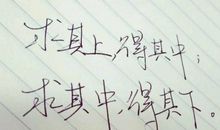 求其上,得其中;
求其中,得其下。